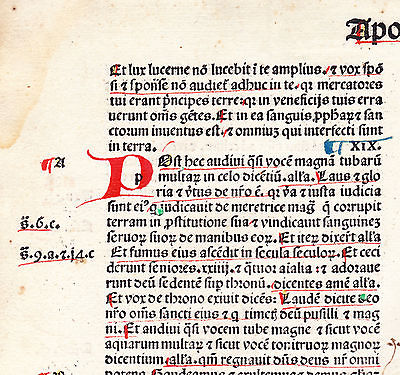 Apo
Et lux lucerne nō lucebit ī te amplius. ⁊ vox spō
si ⁊ sponse nō audiet̉ adhuc in te. qꝛ mercatores
tui erant prīcipes terre: qꝛ in veneficijs tuis erra
uerunt om̄s gētes. Et in ea sanguis prpharꝝ ⁊ san
ctorum inuentus est. ⁊ omnium qui interfecti sunt
in terra.
XIX.
A
POst hec audiui q̄si vocē magnā tubarū
multarū in celo dicētiū. all̓a. Laus ⁊ glo
ria ⁊ v̓tus de n̄ro ē. qꝛ v̓a ⁊ iusta iudicia
sunt ei⁹. q̓ iudicauit de meretrice maḡ q̄ corrupit
terram in ꝓstitutione sua ⁊ vindicauit sanguinez
seruoꝝ suoꝝ de manibus eoꝝ. Et iteꝝ dixerūt all̓a
s̄.6.c.
Et fumus eius ascēdit in secula seculoꝝ. Et ceci
s̄.9.a.⁊.14.c
derunt seniores .xxiiij. ⁊ quatuor aialia: ⁊ adoraue
runt deū sedentē suꝑ thronū. dicentes amē all̓a
Et vox de throno exiuit dicēs: Laudē dicite deo
nr̄o om̄s sancti eius ⁊ q̓ timetꝭ deū pusilli ⁊ mag
ni. Et audiui q̄si vocem tube magne ⁊ sicut vocē
aquarum multarꝝ ⁊ sicut vocē tonitruoꝝ magnoꝝ
dicentium all̓a. qm̄ regnauit dn̄s deus nr̄ omni
potens